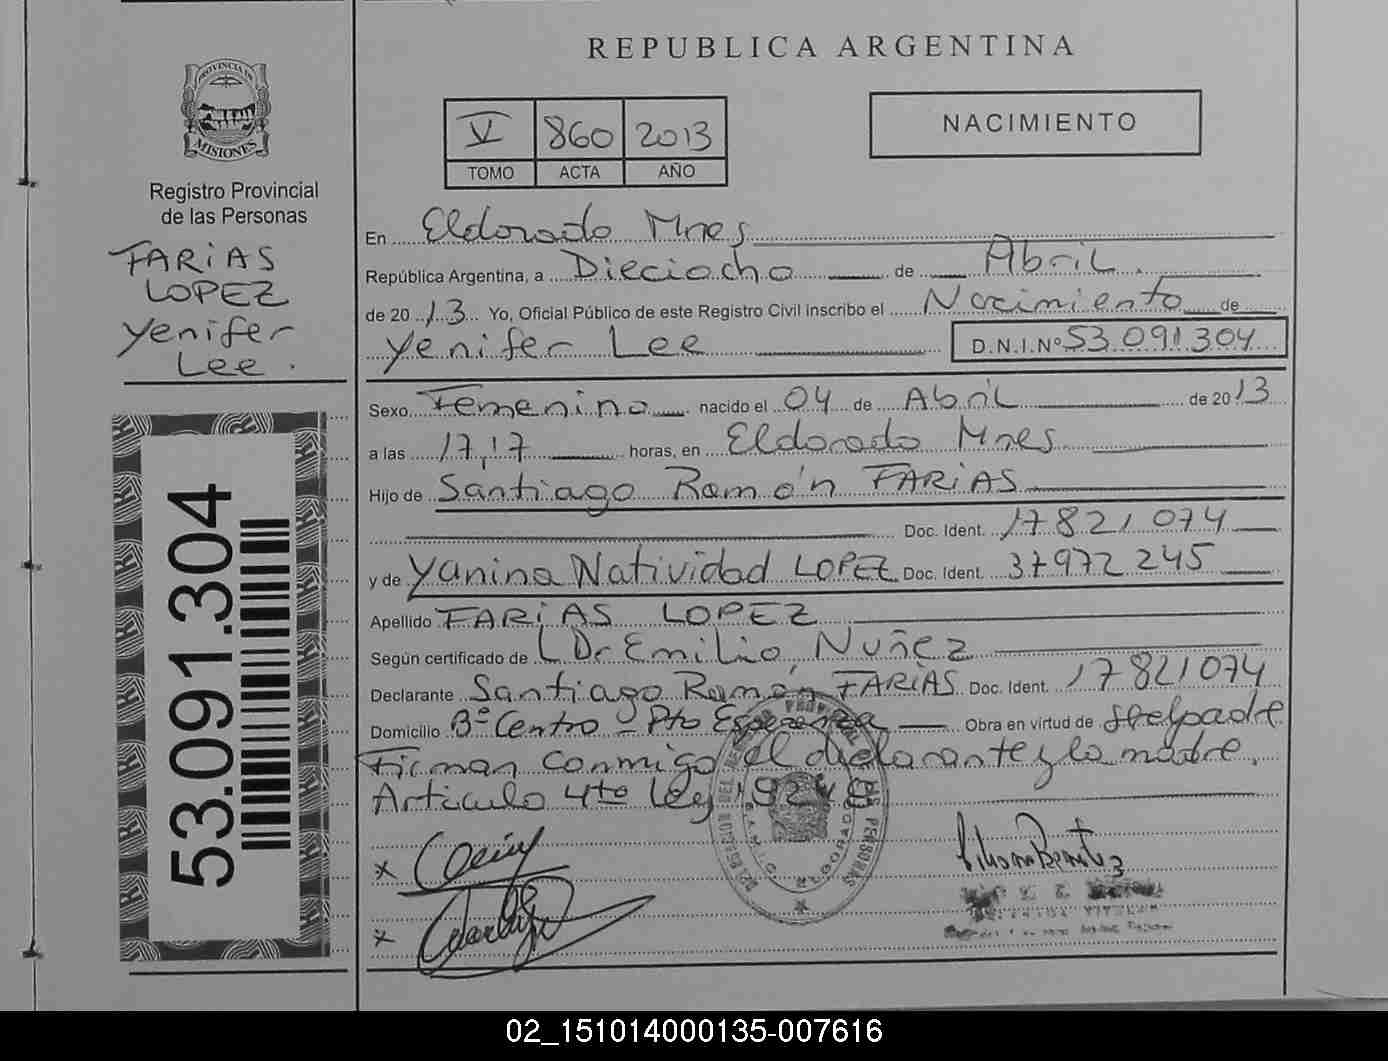 REPUBLICA ARGENTINA
PROVINCIA DE
MISIONES
Registro Provincial
de las Personas
FARIAS
LOPEZ
Yenifer
Lee.
53.091.304
V 860 2013
TOMO ACTA AÑO
NACIMIENTO
En Eldorado Mnes
República Argentina, a Dieciocho de Abril.
de 2013 Yo, Oficial Público de este Registro Civil inscribo el Nacimiento de
Yenifer Lee D.N.I.Nº 53.091.304
Sexo Femenino nacido el 04 de Abril de 2013
a las 17,17 horas, en Eldorado Mnes
Hijo de Santiago Ramón FARIAS
Doc. Ident. 17821074
y de Yanina Natividad LOPEZ Doc. Ident. 37972245
Apellido FARIAS LOPEZ
Según certificado de Dr Emilio Nuñez
Declarante Santiago Ramón FARIAS Doc. Ident. 17821074
Domicilio Bº Centro - Pto Esperanza Obra en virtud de padre
Firman conmigo el declarante y la madre.
Articulo 4to Ley
x
x
02_151014000135-007616